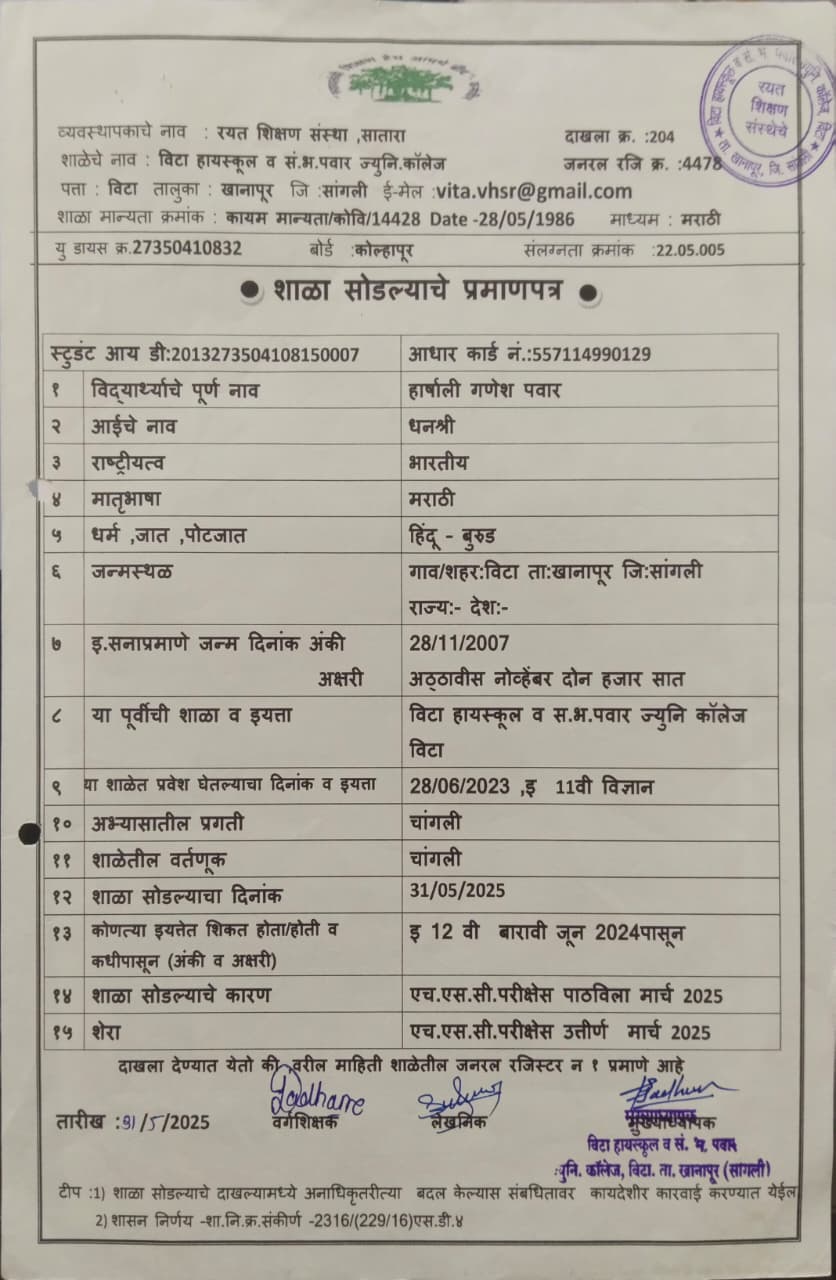 व्यवस्थापकाचे नाव : रयत शिक्षण संस्था ,सातारा दाखला क्र. :204
शाळेचे नाव : विटा हायस्कूल व सं.भ.पवार ज्युनि.कॉलेज जनरल रजि क्र. :4478
पत्ता : विटा तालुका : खानापूर जि :सांगली ई-मेल :vita.vhsr@gmail.com
शाळा मान्यता क्रमांक : कायम मान्यता/कोवि/14428 Date -28/05/1986 माध्यम : मराठी
यु डायस क्र.27350410832 बोर्ड :कोल्हापूर संलग्नता क्रमांक :22.05.005
रयत
शिक्षण
संस्थेचे
ता. खानापूर, जि. सांगली
● शाळा सोडल्याचे प्रमाणपत्र ●
स्टुडंट आय डी:2013273504108150007 आधार कार्ड नं.:557114990129
१ विद्यार्थ्याचे पूर्ण नाव हार्षाली गणेश पवार
२ आईचे नाव धनश्री
३ राष्ट्रीयत्व भारतीय
४ मातृभाषा मराठी
५ धर्म ,जात ,पोटजात हिंदू - बुरुड
६ जन्मस्थळ गाव/शहर:विटा ता:खानापूर जि:सांगली
राज्य:- देश:-
७ इ.सनाप्रमाणे जन्म दिनांक अंकी 28/11/2007
अक्षरी अठ्ठावीस नोव्हेंबर दोन हजार सात
८ या पूर्वीची शाळा व इयत्ता विटा हायस्कूल व स.भ.पवार ज्युनि कॉलेज
विटा
९ या शाळेत प्रवेश घेतल्याचा दिनांक व इयत्ता 28/06/2023 ,इ 11वी विज्ञान
१० अभ्यासातील प्रगती चांगली
११ शाळेतील वर्तणूक चांगली
१२ शाळा सोडल्याचा दिनांक 31/05/2025
१३ कोणत्या इयत्तेत शिकत होता/होती व इ 12 वी बारावी जून 2024पासून
कधीपासून (अंकी व अक्षरी)
१४ शाळा सोडल्याचे कारण एच.एस.सी.परीक्षेस पाठविला मार्च 2025
१५ शेरा एच.एस.सी.परीक्षेस उत्तीर्ण मार्च 2025
दाखला देण्यात येतो की ,वरील माहिती शाळेतील जनरल रजिस्टर न १ प्रमाणे आहे
तारीख :31/5/2025 वर्गशिक्षक लेखनिक मुख्याध्यापक
मुख्याध्यापक
विटा हायस्कूल व सं. भ. पवार
ज्युनि. कॉलेज, विटा. ता. खानापूर (सांगली)
टीप :1) शाळा सोडल्याचे दाखल्यामध्ये अनाधिकृतरीत्या बदल केल्यास संबधितावर कायदेशीर कारवाई करण्यात येईल
2) शासन निर्णय -शा.नि.क्र.संकीर्ण -2316/(229/16)एस.डी.४